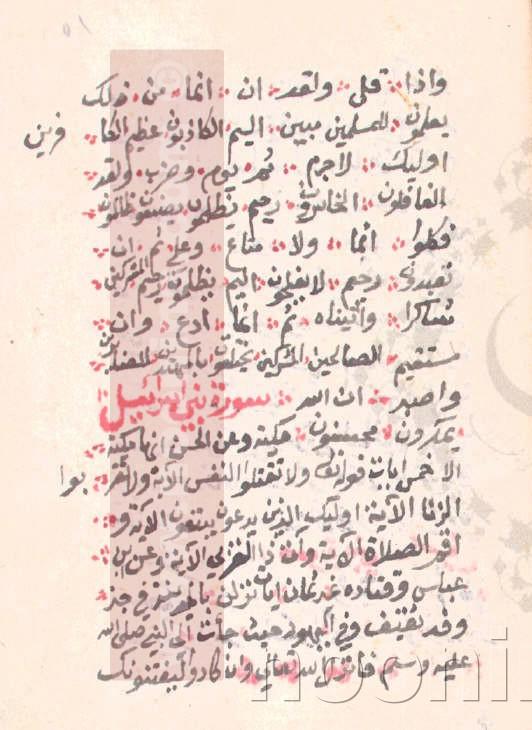 واذا قلى ولقد ان انما من ذلك
يعلمون للمسلمين مبين اليم الكاذبون عظيم الكا فرين
اوليك لاجرم ثم يوم وضرب ولقد
الغافلون الخاسرون رحيم يظلمون يصنعون ظالمون
فكلوا انما ولا متاع وعلى ثم ان
تعبدون رحيم لا يفلحون اليم يظلمون رحيم المشركين
شاكرا واتيناه ثم انما ادع وان
مستقيم الصالحين المشركين يختلفون بالمهتدين للصابرين
واصبر ان الله سورة بني اسرائيل
يمكرون محسنون مكية وعن الحسن انها مكية
الا خمس ايات قوله ولا تقتلوا النفس الاية ولا تقر بوا
الزنا الآية اوليك الذين يدعون يبتغون الاية و
اقم الصلاة الآية وآت ذا القربى الآية وعن ابن
عباس وقتاده غير ثمان ايات نزلن بالمدينة في خبر
وفد ثقيف وفي اليهود حيث جأت الى النبي صلى الله
عليه وسلم فانزل الله تعالي وان كادو ليفتنونك